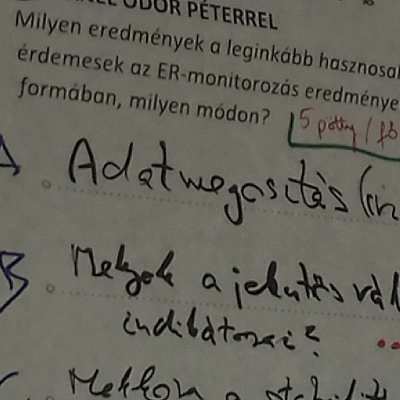 ODOR PÉTERREL
Milyen eredmények a leginkább hasznosa
érdemesek az ER-monitorozás eredménye
formában, milyen módon?
5 pötty / fő
A Adatmegosztás
B Melyek a jelentés
indikátorai?